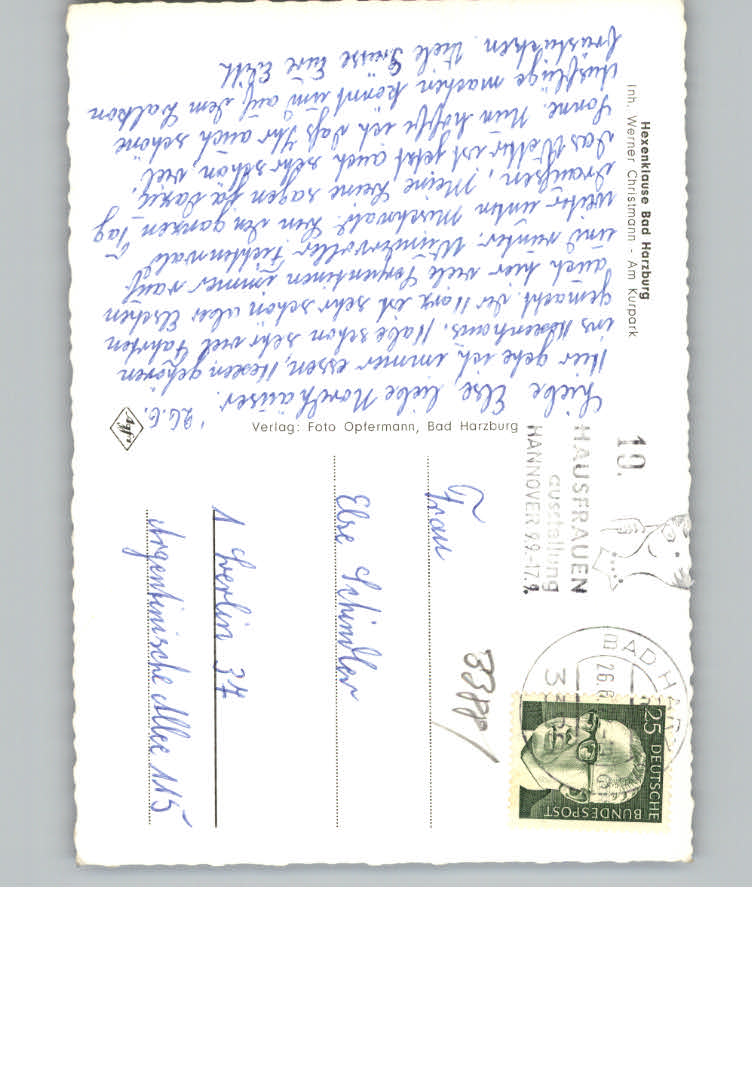 Hexenklause Bad Harzburg
Inh. Werner Christmann - Am Kurpark
'26.6.
Liebe Else, liebe Nordhäuser.
Hier gehe ich immer essen, Hexen gehören
ins Hexenhaus. Habe schon sehr viel Fahrten
gemacht. Der Harz ist sehr schön aber Elschen
auch hier viele Serpentinen immer rauf
und runter. Wundervoller Fichtenwald
weiter unten Mischwald. Bin den ganzen Tag
draußen. Meine Beine sagen ja dazu.
Das Wetter ist jetzt auch sehr schön, viel
Sonne. Nun hoffe ich daß Ihr auch schöne
Ausflüge machen könnt um auf dem Balkon
frühstücken. Viele Grüsse Eure
Verlag: Foto Opfermann, Bad Harzburg
Agfa
10.
HAUSFRAUEN
ausstellung
HANNOVER 9.9.-17.9.
BAD HARZ
26.6.
33
25 DEUTSCHE
BUNDESPOST
33PP/
Frau
Else Schindler
1 Berlin 37
Argentinische Allee 115